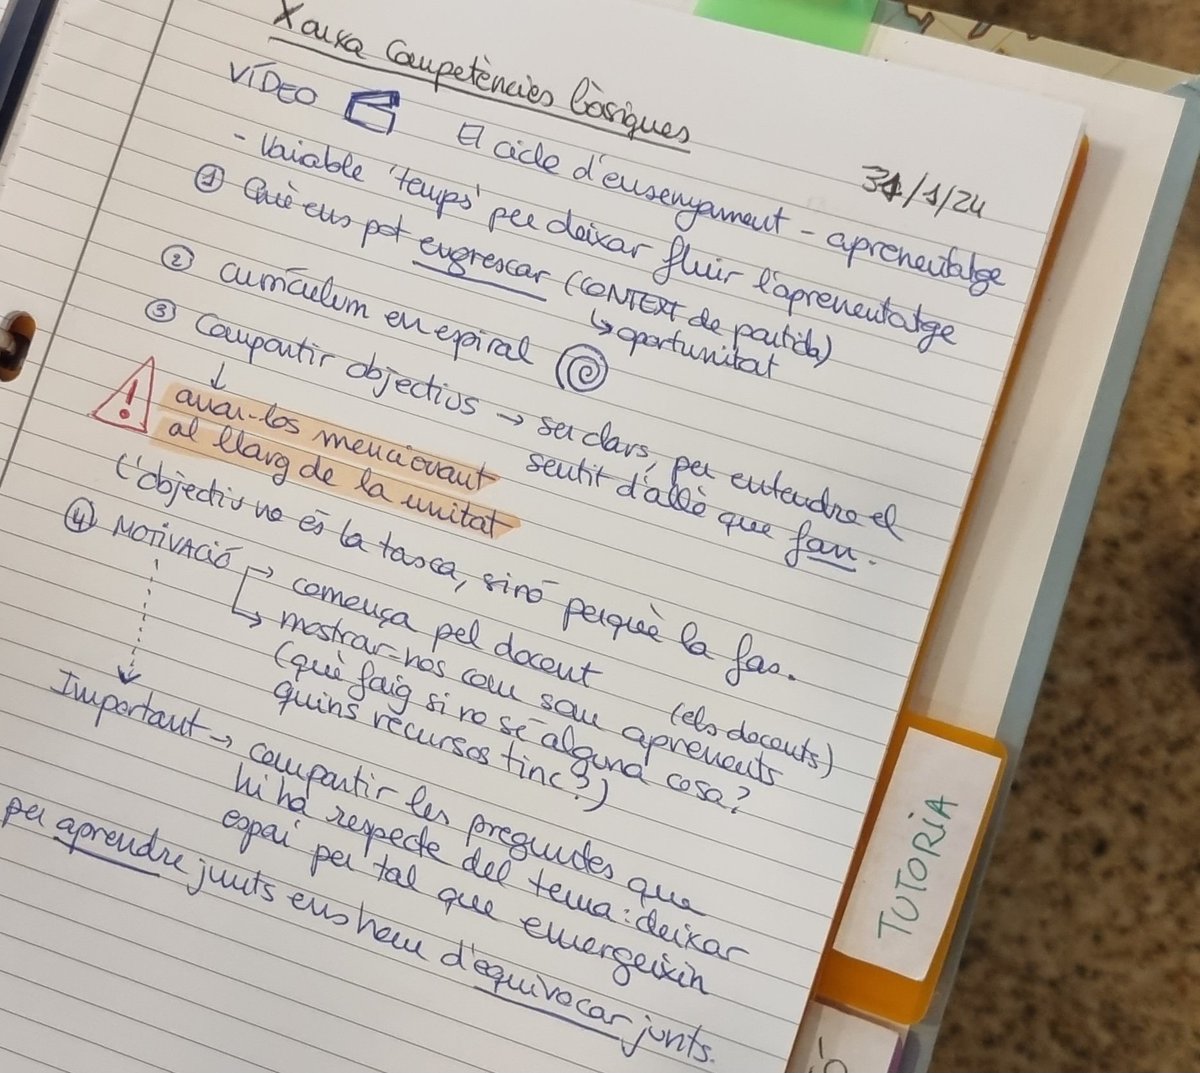 Xarxa Competències bàsiques
31/1/24
VÍDEO El cicle d'ensenyament - aprenentatge
- Variable 'temps' per deixar fluir l'aprenentatge
① Què ens pot engrescar (CONTEXT de partida)
↳ oportunitat
② currículum en espiral
③ Compartir objectius → ser clars, per entendre el
sentit d'allò que fan.
↓
! anar-los mencionant
al llarg de la unitat
L'objectiu no és la tasca, sinó perquè la fas.
④ MOTIVACIÓ → comença pel docent
↳ mostrar-nos com som aprenents (els docents)
(què faig si no sé alguna cosa?
quins recursos tinc?)
Important → compartir les preguntes que
hi ha respecte del tema: deixar
espai per tal que emergeixin
per aprendre junts ens hem d'equivocar junts.
TUTORIA
Ó